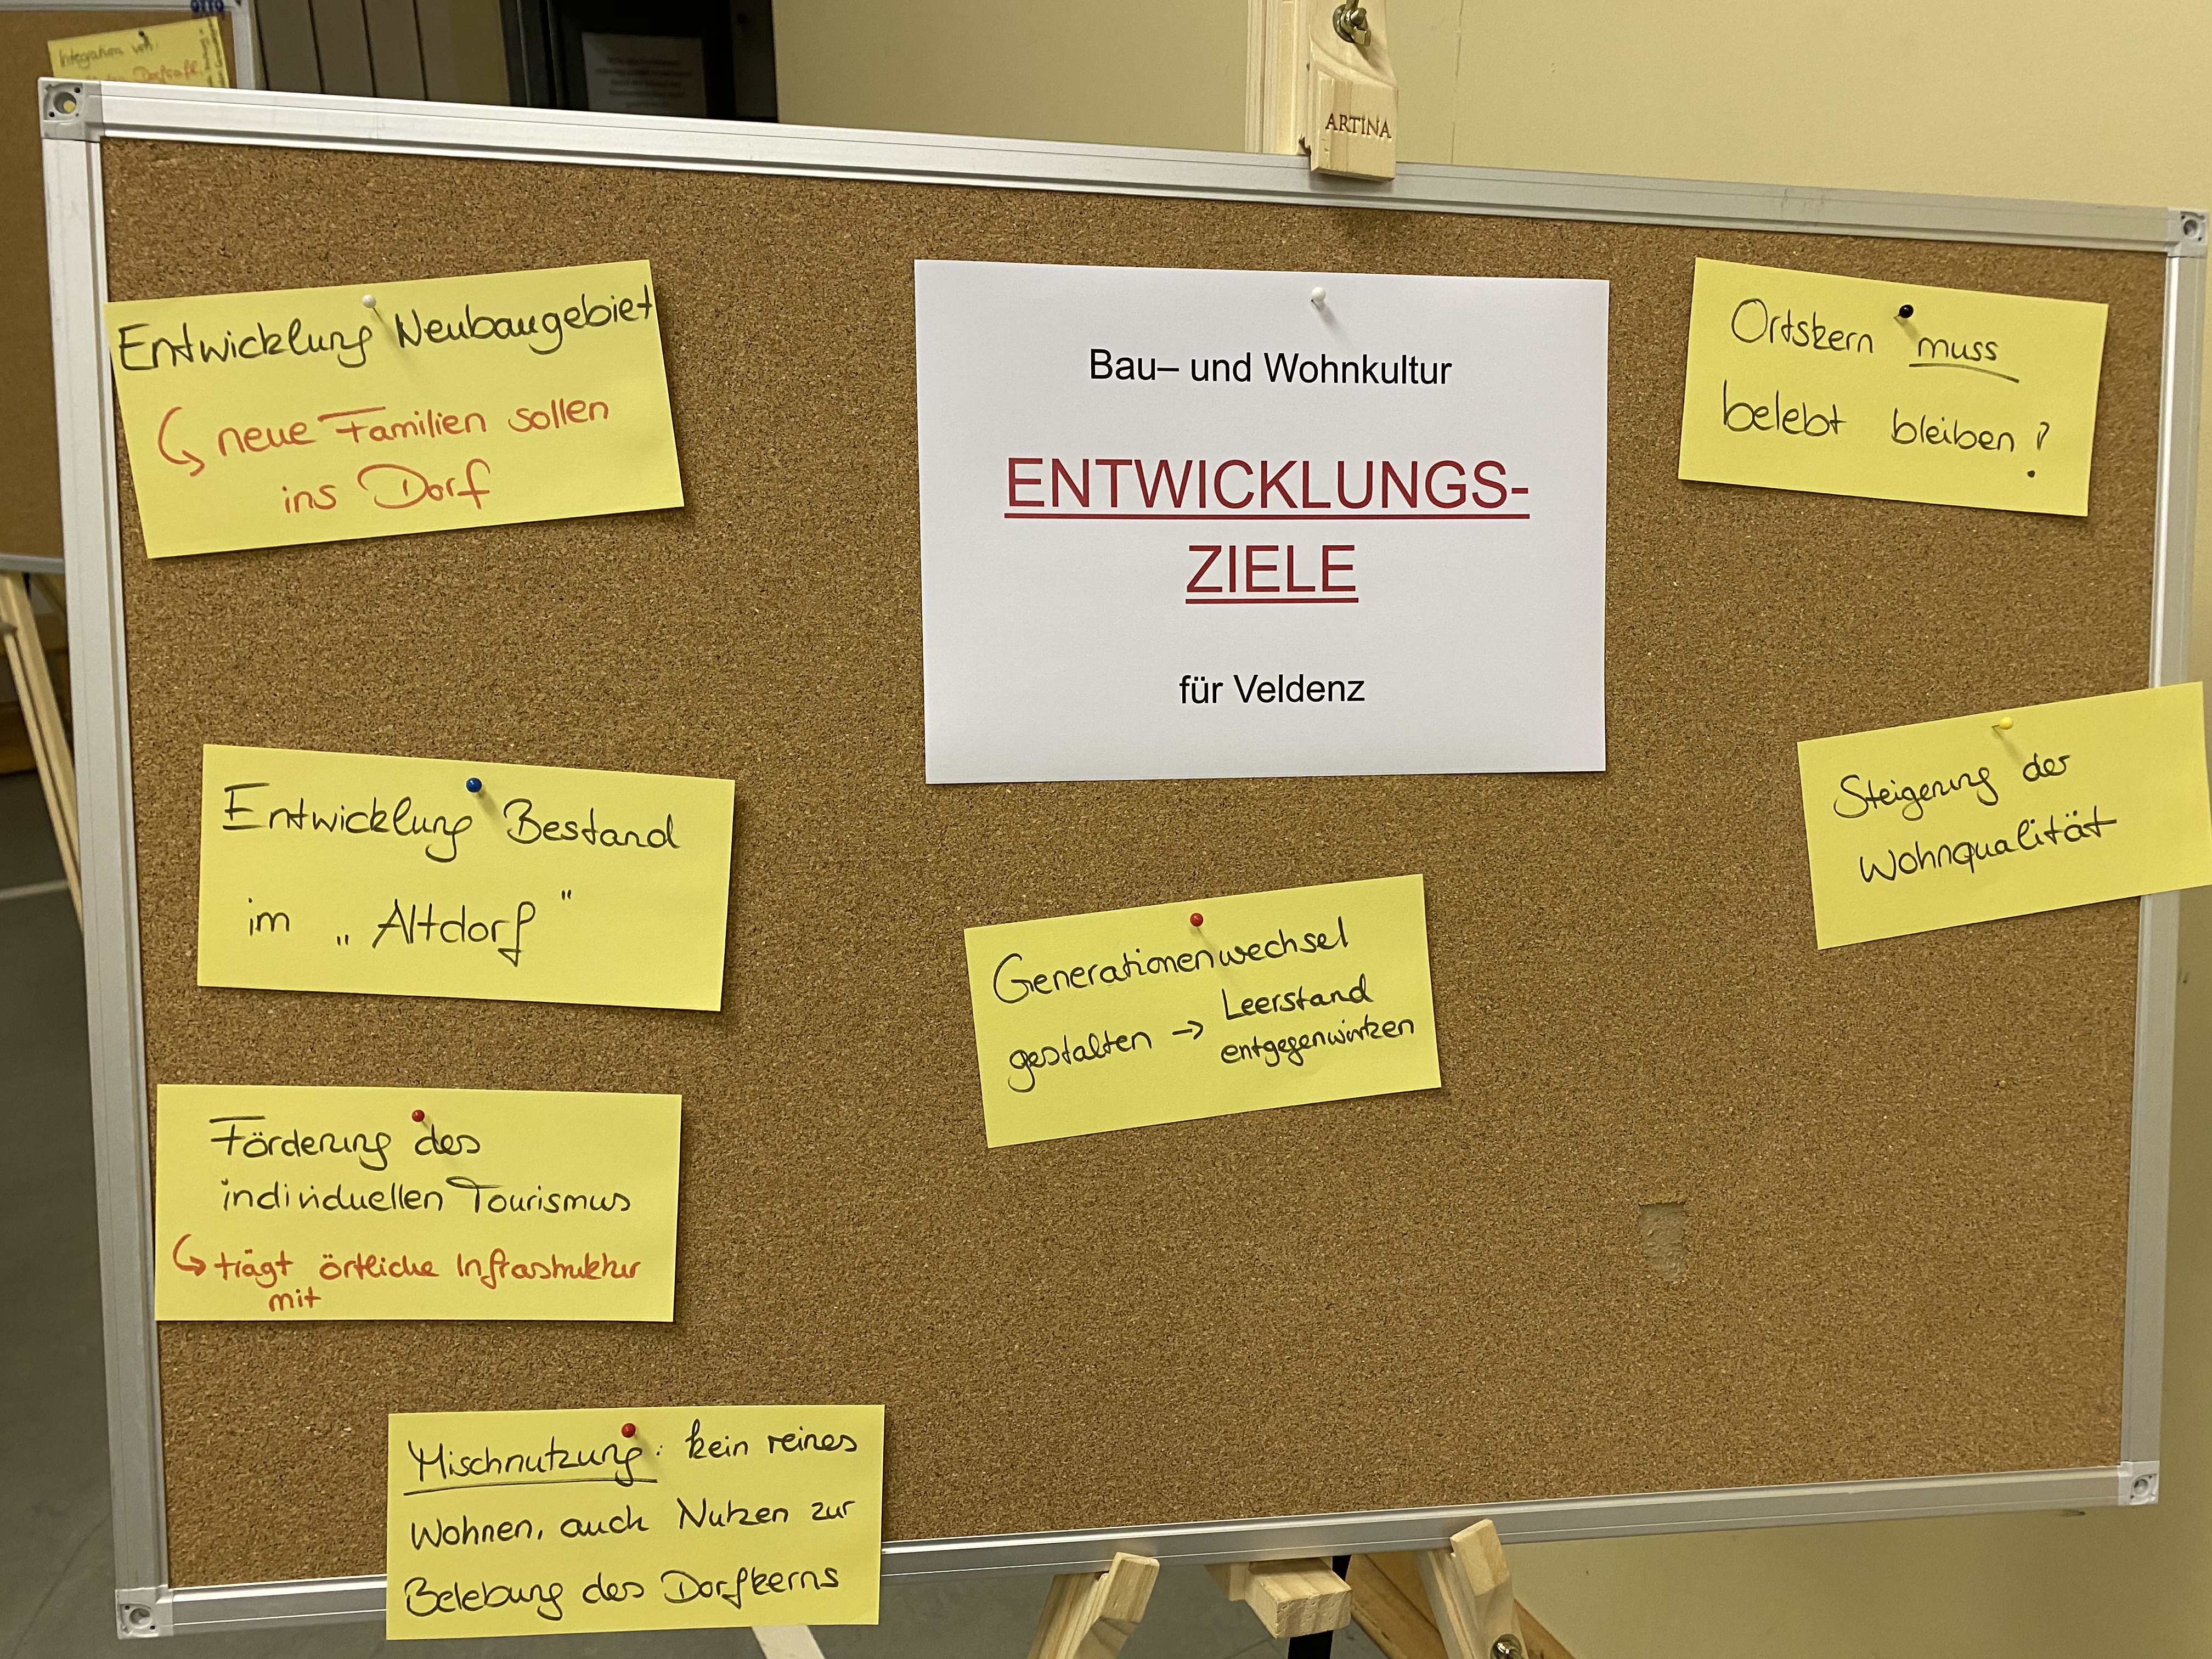 Integration von:
ARTINA
Entwicklung Neubaugebiet
↳ neue Familien sollen
ins Dorf
Bau– und Wohnkultur
ENTWICKLUNGS-
ZIELE
für Veldenz
Ortskern muss
belebt bleiben!
Entwicklung Bestand
im „Altdorf"
Steigerung der
Wohnqualität
Generationenwechsel
gestalten → Leerstand
entgegenwirken
Förderung des
individuellen Tourismus
↳ trägt örtliche Infrastruktur
mit
Mischnutzung: kein reines
Wohnen, auch Nutzen zur
Belebung des Dorfkerns